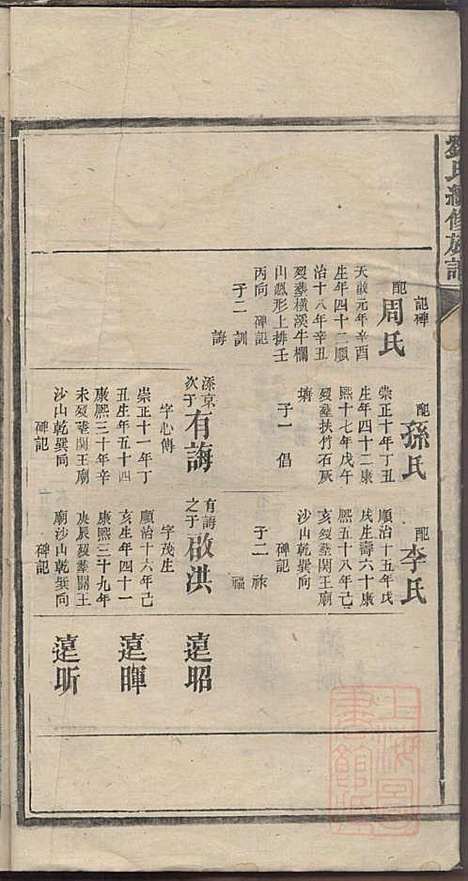 劉氏續修族譜
碑記
配周氏
天啟元年辛酉
生年四十二順
治十八年辛丑
歿葬橫溪牛欄
山鳳形上排壬
丙向 碑記
子二 訓
誨
配孫氏
崇正十年丁丑
生年四十二康
熙十七年戊午
歿葬扶竹石灰
子一 倡
深京次子有誨
字心傳
崇正十一年丁
丑生年五十四
康熙三十年辛
未歿葬関王廟
沙山乾巽向
碑記
配李氏
順治十五年戊
戌生壽六十康
熙五十八年己
亥歿葬関王廟
沙山乾巽向
碑記
子二 祚
福
有誨之子啟洪
字茂生
順治十六年己
亥生年四十一
康熙三十九年
庚辰歿葬關王
廟沙山乾巽向
碑記
遠昭
遠暉
遠昕
上海圖書館藏